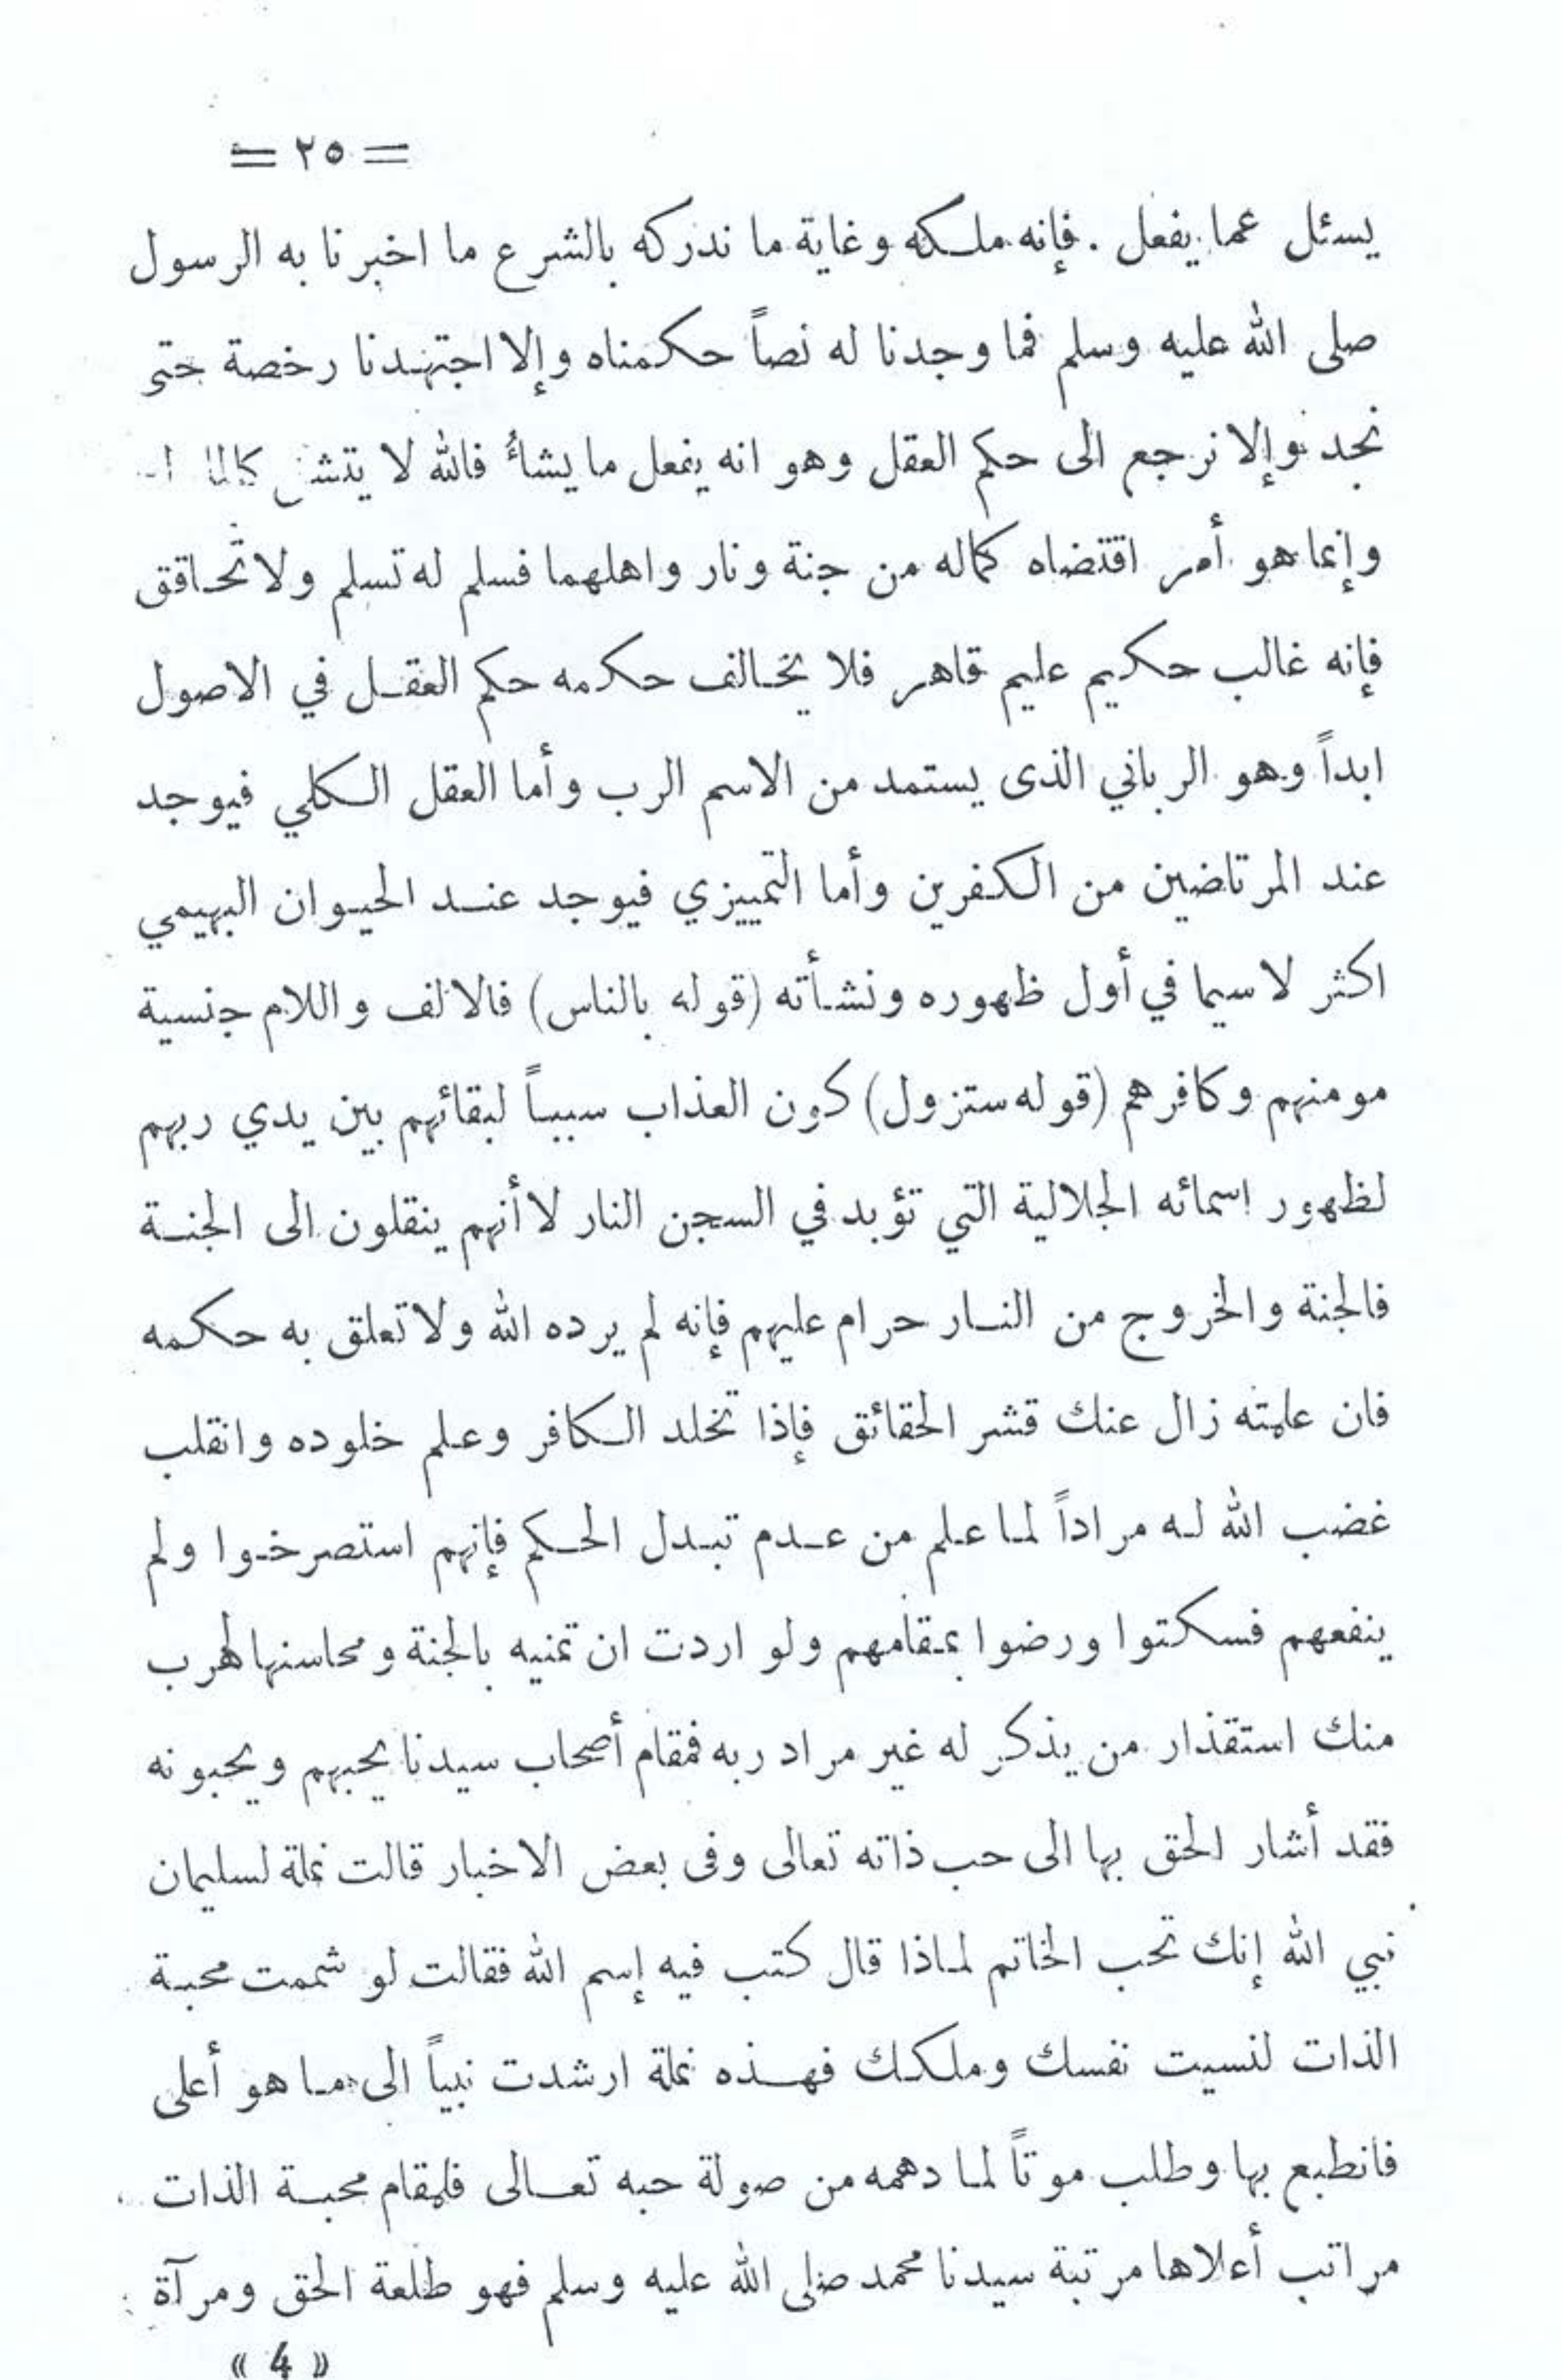 = ٢٥ =
يسئل عما يفعل . فإنه ملكه وغاية ما ندركه بالشرع ما اخبرنا به الرسول
صلى الله عليه وسلم فما وجدنا له نصاً حكمناه وإلا اجتهدنا رخصة حتى
نجد وإلا نرجع الى حكم العقل وهو انه يفعل ما يشاأ فالله لا
وإنما هو أمر اقتضاه كماله من جنة ونار واهلهما فسلم له تسلم ولا تحاقق
فإنه غالب حكيم عليم قاهر فلا يخالف حكمه حكم العقل في الاصول
ابداً وهو الرباني الذى يستمد من الاسم الرب وأما العقل الكلي فيوجد
عند المرتاضين من الكفرين وأما التمييزي فيوجد عند الحيوان البهيمي
اكثر لا سيما في أول ظهوره ونشأته (قوله بالناس) فالالف واللام جنسية
مومنهم وكافرهم (قوله ستزول) كون العذاب سبباً لبقائهم بين يدي ربهم
لظهور اسمائه الجلالية التي تؤبد في السجن النار لا أنهم ينقلون الى الجنة
فالجنة والخروج من النار حرام عليهم فإنه لم يرده الله ولا تعلق به حكمه
فان علمته زال عنك قشر الحقائق فإذا تخلد الكافر وعلم خلوده وانقلب
غضب الله له مراداً لما علم من عدم تبدل الحكم فإنهم استصرخوا ولم
ينفعهم فسكتوا ورضوا بمقامهم ولو اردت ان تمنيه بالجنة ومحاسنها لهرب
منك استقذار من يذكر له غير مراد ربه فمقام أصحاب سيدنا يحبهم ويحبونه
فقد أشار الحق بها الى حب ذاته تعالى وفى بعض الاخبار قالت نملة لسليمان
نبي الله إنك تحب الخاتم لماذا قال كتب فيه إسم الله فقالت لو شممت محبة
الذات لنسيت نفسك وملكك فهذه نملة ارشدت نبياً الى ما هو أعلى
فانطبع بها وطلب موتاً لما دهمه من صولة حبه تعالى فلمقام محبة الذات
مراتب أعلاها مرتبة سيدنا محمد صلى الله عليه وسلم فهو طلعة الحق ومرآة
« 4 »